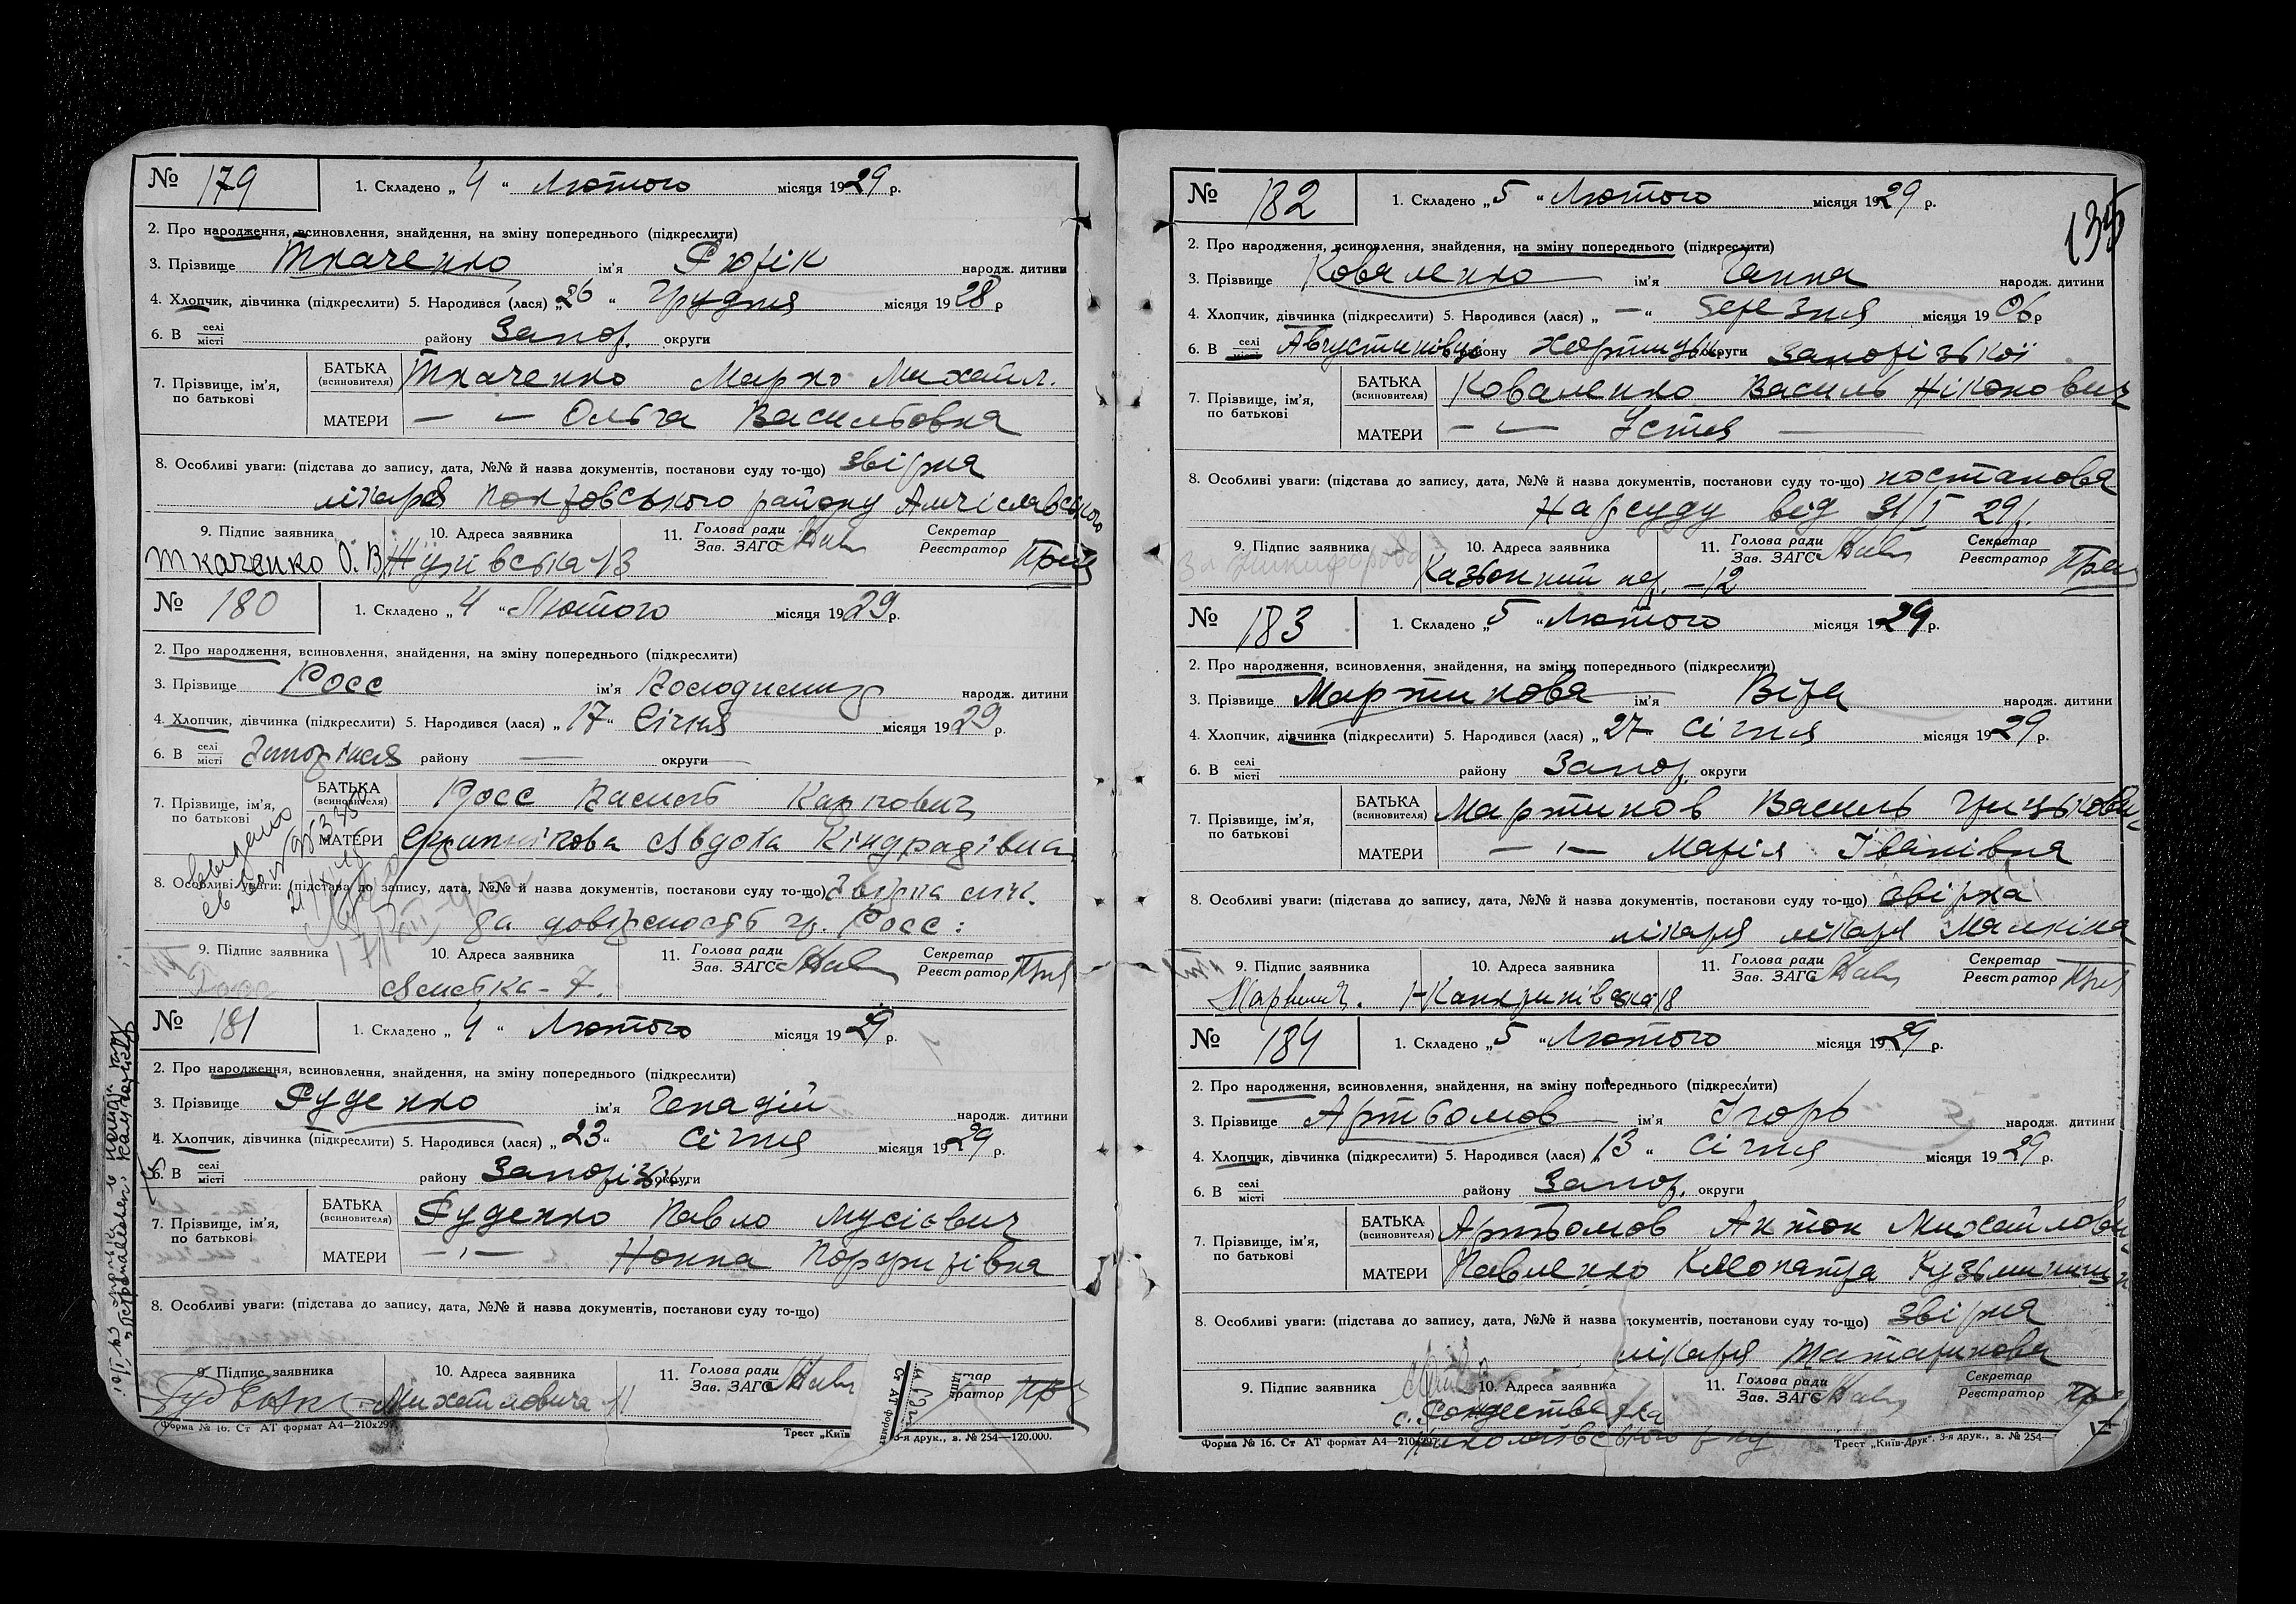 № 179
1. Складено „ 4 “ Лютого місяця 1929 р.
2. Про народження, всиновлення, знайдення, на зміну попереднього (підкреслити)
3. Прізвище Ткаченко ім'я Рюрік народж. дитини
4. Хлопчик, дівчинка (підкреслити) 5. Народився (лася) „ 26 “ Грудня місяця 1928 р
6. В селі місті району Запор. округи
7. Прізвище, ім'я, по батькові
БАТЬКА (всиновителя) Ткаченко Марко Михайл.
МАТЕРИ — — Ольга Васильовна
8. Особливі уваги: (підстава до запису, дата, №№ й назва документів, постанови суду то-що) звірка
лікаря Покровського району
9. Підпис заявника 10. Адреса заявника 11. Голова ради Зав. ЗАГС Секретар Реєстратор
Ткаченко О. В.
№ 180
1. Складено „ 4 “ Лютого місяця 1929 р.
2. Про народження, всиновлення, знайдення, на зміну попереднього (підкреслити)
3. Прізвище Росс ім'я Володимир народж. дитини
4. Хлопчик, дівчинка (підкреслити) 5. Народився (лася) „ 17 “ Січня місяця 1929 р.
6. В селі місті Запоріжжя району — округи —
7. Прізвище, ім'я, по батькові
БАТЬКА (всиновителя) Росс Василь Карпович
МАТЕРИ Авдотя Кіндрадівна
8. Особливі уваги: (підстава до запису, дата, №№ й назва документів, постанови суду то-що)
За довіреностю гр. Росс:
9. Підпис заявника 10. Адреса заявника 11. Голова ради Зав. ЗАГС Секретар Реєстратор
Росс
№ 181
1. Складено „ 4 “ Лютого місяця 1929 р.
2. Про народження, всиновлення, знайдення, на зміну попереднього (підкреслити)
3. Прізвище Руденко ім'я Генадій народж. дитини
4. Хлопчик, дівчинка (підкреслити) 5. Народився (лася) „ 23 “ Січня місяця 1929 р.
6. В селі місті району Запорізьк. округи
7. Прізвище, ім'я, по батькові
БАТЬКА (всиновителя) Руденко Павло Мусієвич
МАТЕРИ — „ — Нонна Порфирівна
8. Особливі уваги: (підстава до запису, дата, №№ й назва документів, постанови суду то-що)
9. Підпис заявника 10. Адреса заявника 11. Голова ради Зав. ЗАГС
Михайловича 11
Форма № 16. Ст АТ формат А4—210х297 Трест „Київ 3-я друк., в. № 254—120.000.
135
№ 182
1. Складено „ 5 “ Лютого місяця 1929 р.
2. Про народження, всиновлення, знайдення, на зміну попереднього (підкреслити)
3. Прізвище Коваленко ім'я Ганна народж. дитини
4. Хлопчик, дівчинка (підкреслити) 5. Народився (лася) „ — “ Березня місяця 1906 р
6. В селі місті Августинівці району Хортицьк. округи Запорізької
7. Прізвище, ім'я, по батькові
БАТЬКА (всиновителя) Коваленко Василь Ніконович
МАТЕРИ — — Устя —
8. Особливі уваги: (підстава до запису, дата, №№ й назва документів, постанови суду то-що) постанова
Нарсуду від 31/I 29р.
9. Підпис заявника 10. Адреса заявника 11. Голова ради Зав. ЗАГС Секретар Реєстратор
Казьонний пер. – 12
№ 183
1. Складено „ 5 “ Лютого місяця 1929 р.
2. Про народження, всиновлення, знайдення, на зміну попереднього (підкреслити)
3. Прізвище Мартинова ім'я Віра народж. дитини
4. Хлопчик, дівчинка (підкреслити) 5. Народився (лася) „ 27 Січня місяця 1929 р.
6. В селі місті району Запор. округи
7. Прізвище, ім'я, по батькові
БАТЬКА (всиновителя) Мартинов Василь Грицькович
МАТЕРИ — „ — Марія Іванівна
8. Особливі уваги: (підстава до запису, дата, №№ й назва документів, постанови суду то-що) звірка
лікаря лікаря Малкіна
9. Підпис заявника 10. Адреса заявника 11. Голова ради Зав. ЗАГС Секретар Реєстратор
№ 184
1. Складено „ 5 “ Лютого місяця 1929 р.
2. Про народження, всиновлення, знайдення, на зміну попереднього (підкреслити)
3. Прізвище Артьомов ім'я Ігорь народж. дитини
4. Хлопчик, дівчинка (підкреслити) 5. Народився (лася) 13 “ Січня місяця 1929 р.
6. В селі місті району Запор. округи
7. Прізвище, ім'я, по батькові
БАТЬКА (всиновителя) Артьомов Антон Михайлович
МАТЕРИ Павленко Клеопатра Кузьминишна
8. Особливі уваги: (підстава до запису, дата, №№ й назва документів, постанови суду то-що) звірка
лікаря Татаринова
9. Підпис заявника 10. Адреса заявника 11. Голова ради Зав. ЗАГС Секретар Реєстратор
с. Рождественка
Форма № 16. Ст АТ формат А4—210х297 Трест „Київ-Друк“. 3-я друк., в. № 254—